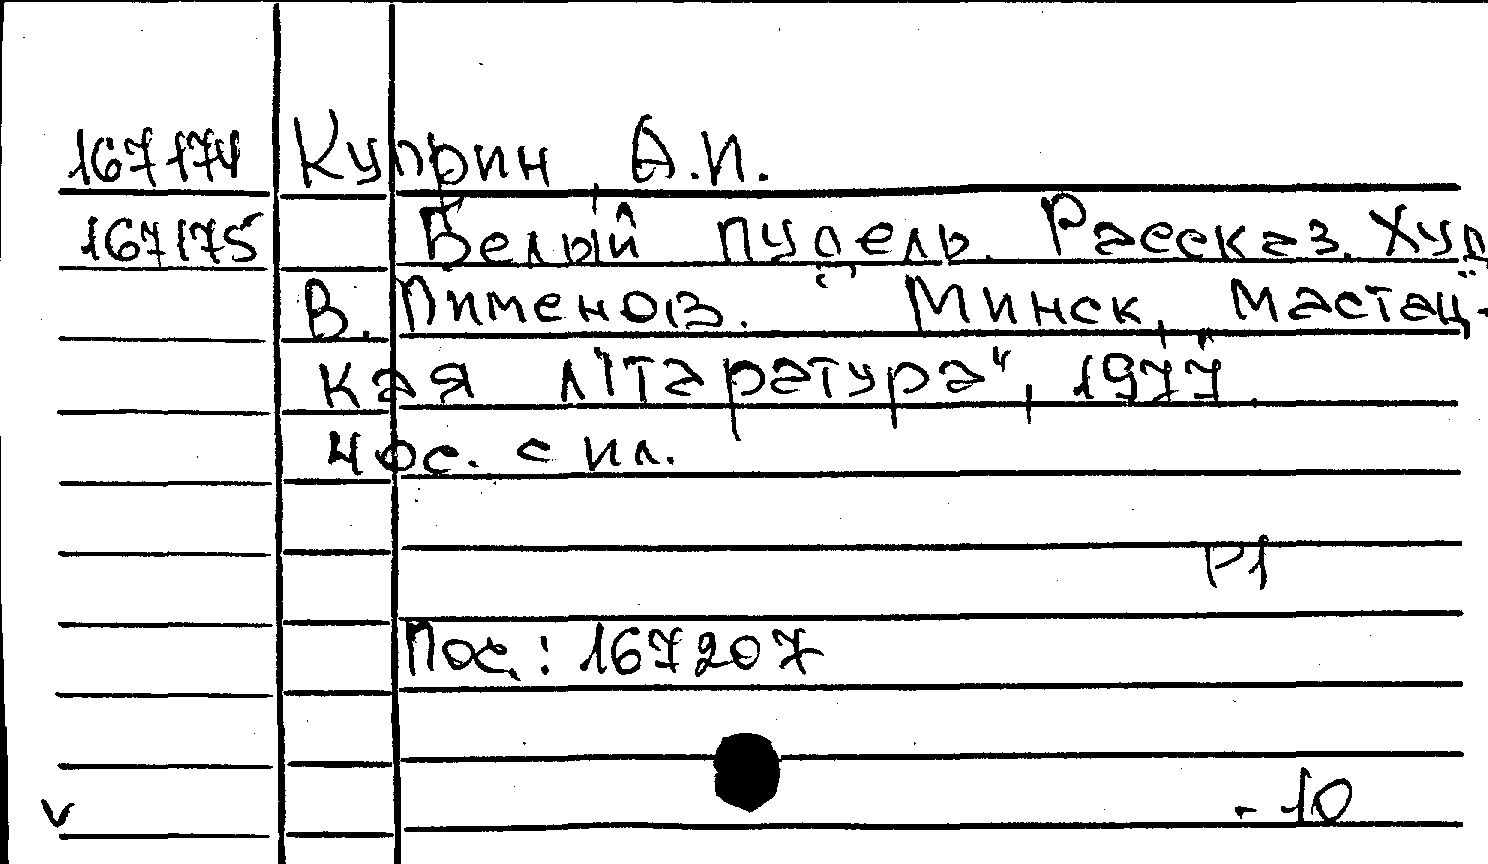 167174 Куприн, А.И.
167175 Белый пудель. Рассказ. Худ.
В. Пименов. Минск, "Мастац-
кая лiтаратура", 1977.
40с. с ил.
Р1
Пос.: 167207
-10